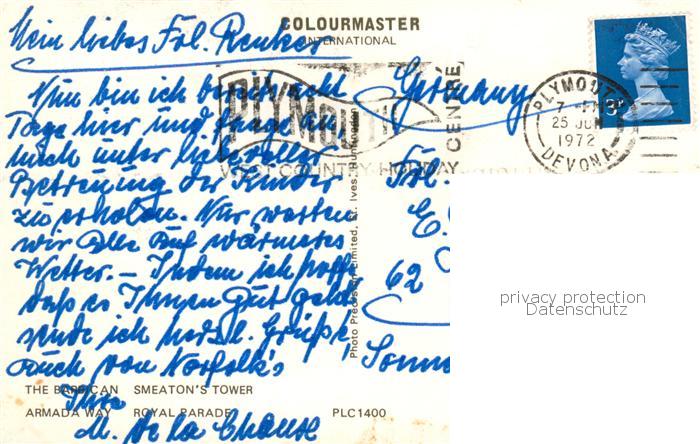 COLOURMASTER
INTERNATIONAL
Mein liebes Frl. Renker
Nun bin ich bereits acht
Tage hier und fange an,
mich unter liebevoller
Betreuung der Kinder
zu erholen. Nur warten
wir alle auf wärmeres
Wetter. – Indem ich hoffe
daß es Ihnen gut geht
sende ich herzl. Grüße,
auch von Norfolk's
Ihre
M. de la Chaux
THE BARBICAN SMEATON'S TOWER
ARMADA WAY ROYAL PARADE PLC1400
Photo Precision Limited, St. Ives, Huntingdon
PLYMOUTH
WEST COUNTRY HOLIDAY
CENTRE
PLYMOUTH
25 JUN
1972
DEVON A
3P
Germany
Frl.
E.
62
privacy protection
Datenschutz